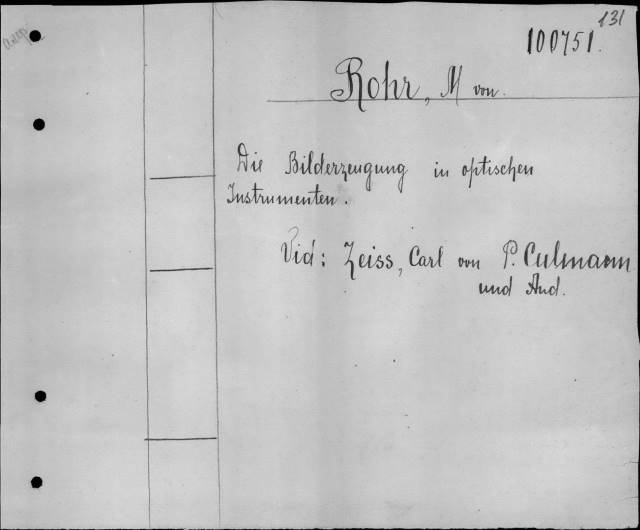 131
100751.
Rohr, M von.
Die Bilderzeugung in optischen
Instrumenten.
Vid: Zeiss, Carl von P. Culmann
und And.